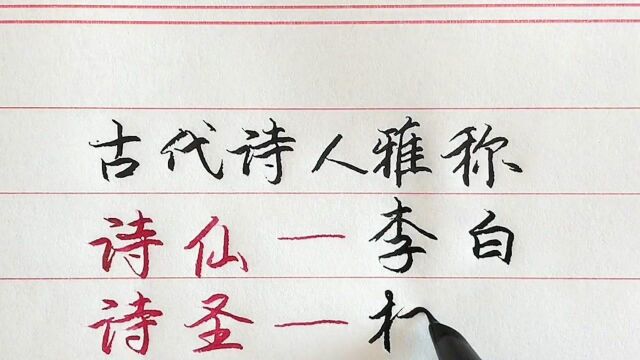 古代诗人雅称
诗仙一李白
诗圣一